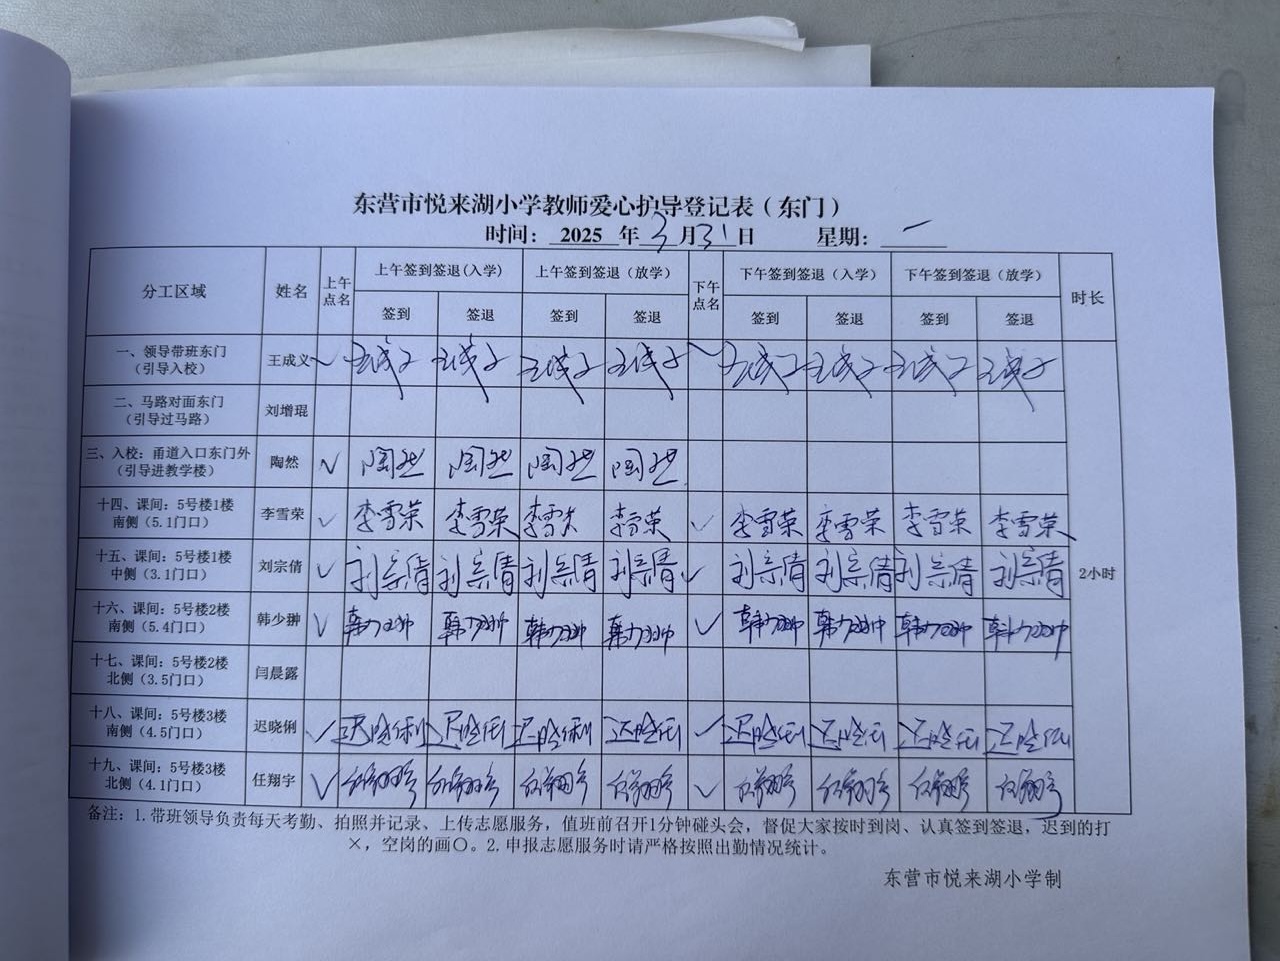 东营市悦来湖小学教师爱心护导登记表（东门）
时间： 2025 年 3 月 31 日 星期： 一
分工区域 姓名 上午点名 上午签到签退(入学) 上午签到签退（放学） 下午点名 下午签到签退（入学） 下午签到签退（放学） 时长
签到 签退 签到 签退 签到 签退 签到 签退
一、领导带班东门（引导入校） 王成义 ✓ 王成义 王成义 王成义 王成义 ✓ 王成义 王成义 王成义 王成义
二、马路对面东门（引导过马路） 刘增琨
三、入校：甬道入口东门外（引导进教学楼） 陶然 ✓ 陶然 陶然 陶然 陶然
十四、课间：5号楼1楼南侧（5.1门口） 李雪荣 ✓ 李雪荣 李雪荣 李雪荣 李雪荣 ✓ 李雪荣 李雪荣 李雪荣 李雪荣
十五、课间：5号楼1楼中侧（3.1门口） 刘宗倩 ✓ 刘宗倩 刘宗倩 刘宗倩 刘宗倩 ✓ 刘宗倩 刘宗倩 刘宗倩 刘宗倩 2小时
十六、课间：5号楼2楼南侧（5.4门口） 韩少翀 ✓ 韩少翀 韩少翀 韩少翀 韩少翀 ✓ 韩少翀 韩少翀 韩少翀 韩少翀
十七、课间：5号楼2楼北侧（3.5门口） 闫晨露
十八、课间：5号楼3楼南侧（4.5门口） 迟晓俐 ✓ 迟晓俐 迟晓俐 迟晓俐 迟晓俐 ✓ 迟晓俐 迟晓俐 迟晓俐 迟晓俐
十九、课间：5号楼3楼北侧（4.1门口） 任翔宇 ✓ 任翔宇 任翔宇 任翔宇 任翔宇 ✓ 任翔宇 任翔宇 任翔宇 任翔宇
备注：1.带班领导负责每天考勤、拍照并记录、上传志愿服务，值班前召开1分钟碰头会，督促大家按时到岗、认真签到签退，迟到的打
×，空岗的画〇。2.申报志愿服务时请严格按照出勤情况统计。
东营市悦来湖小学制